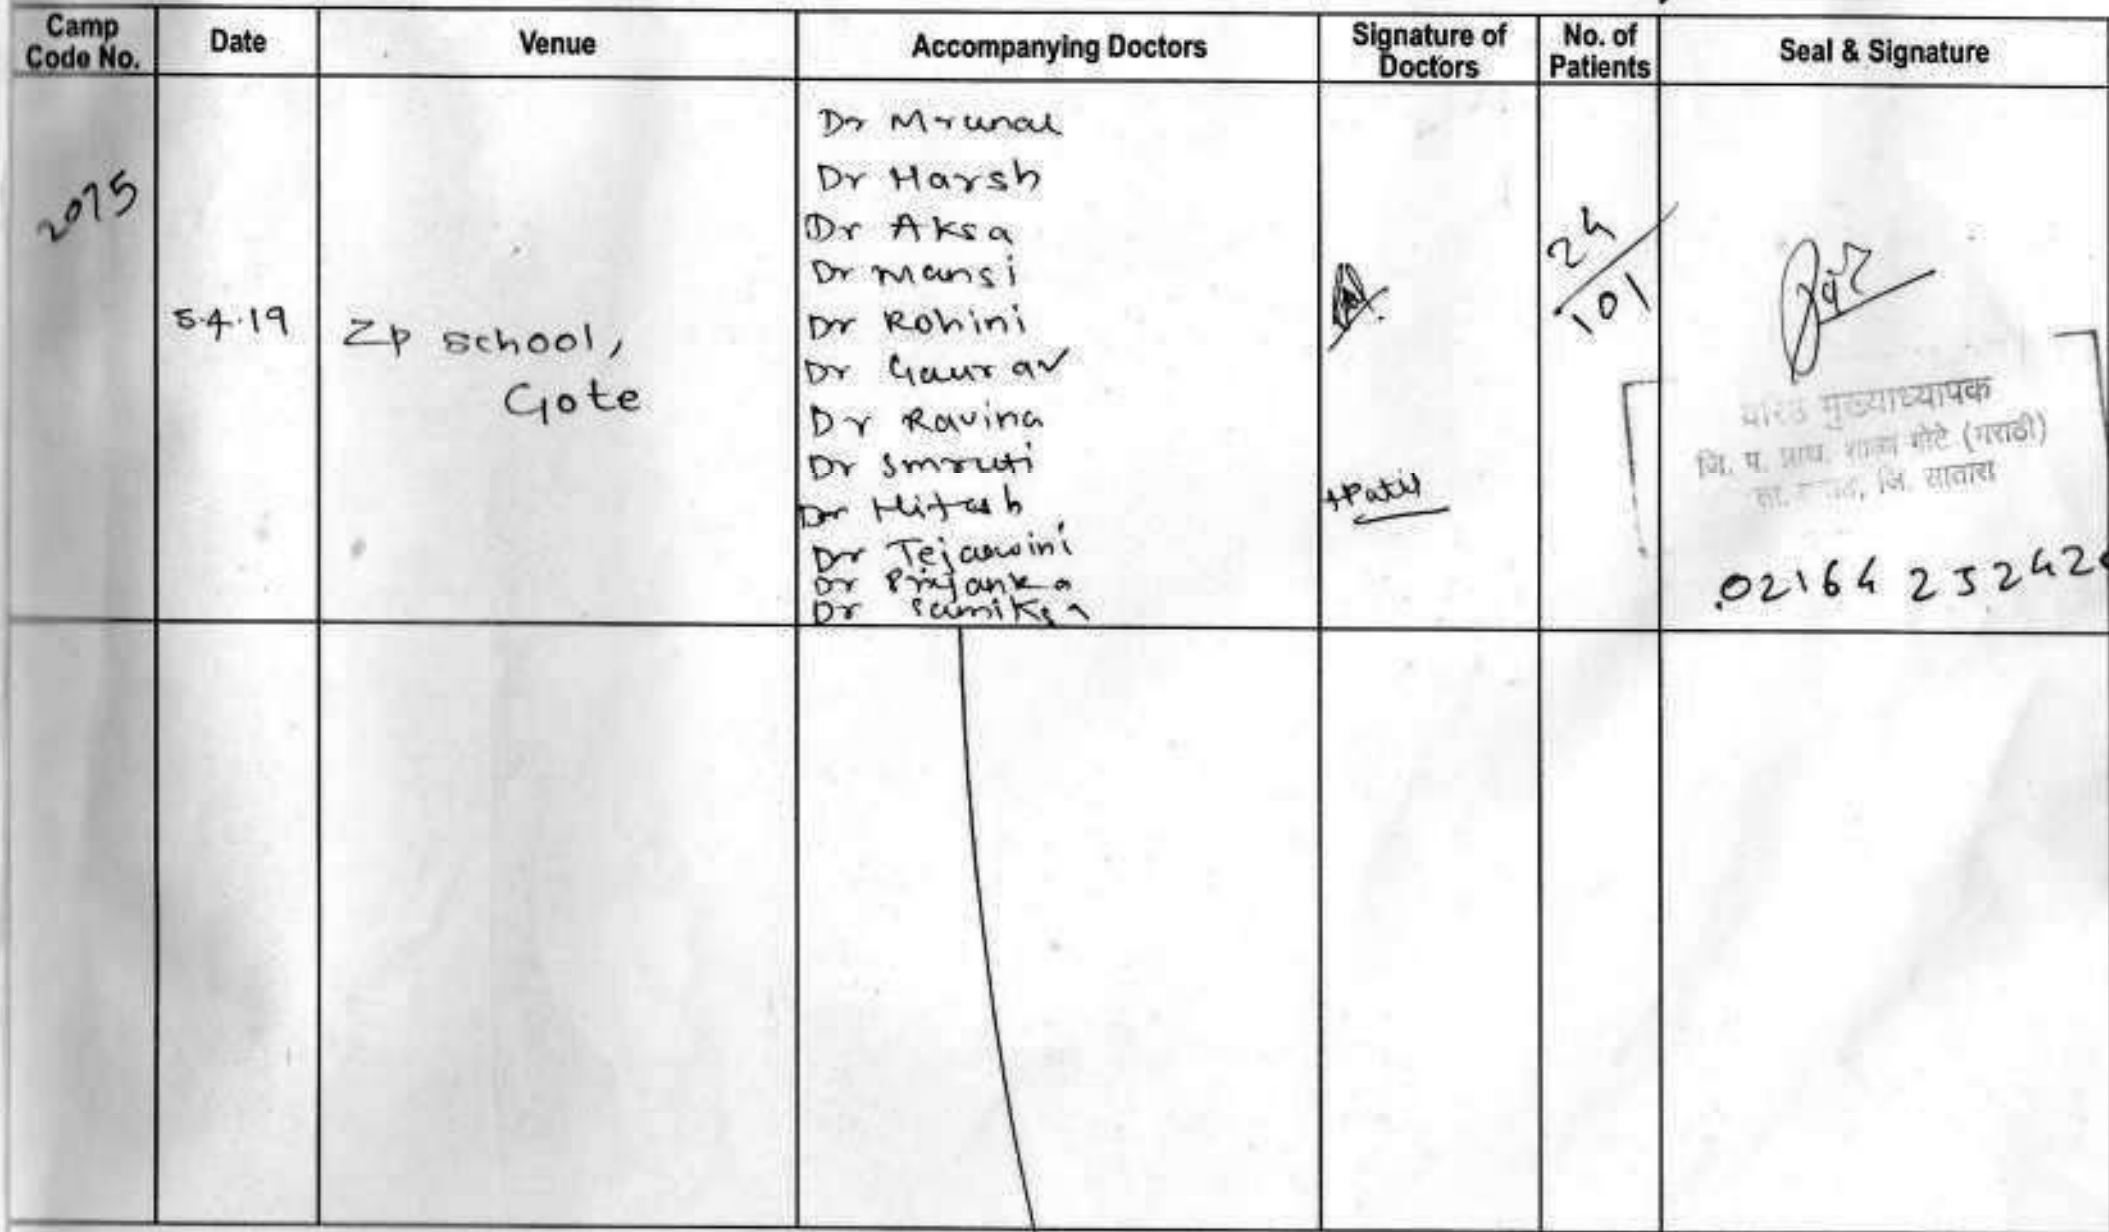 Camp Code No.
Date
Venue
Accompanying Doctors
Signature of Doctors
No. of Patients
Seal & Signature
2075
5.4.19
Zp school,
Gote
Dr Mrunal
Dr Harsh
Dr Aksa
Dr Mansi
Dr Rohini
Dr Gaurav
Dr Ravina
Dr Smruti
Dr Hitesh
Dr Tejaswini
Dr Priyanka
Dr Samiksa
Patil
24
101
मुख्याध्यापक
जि. प. प्राथ. शाळा गोटे (मराठी)
जि. सातारा
02164 25242